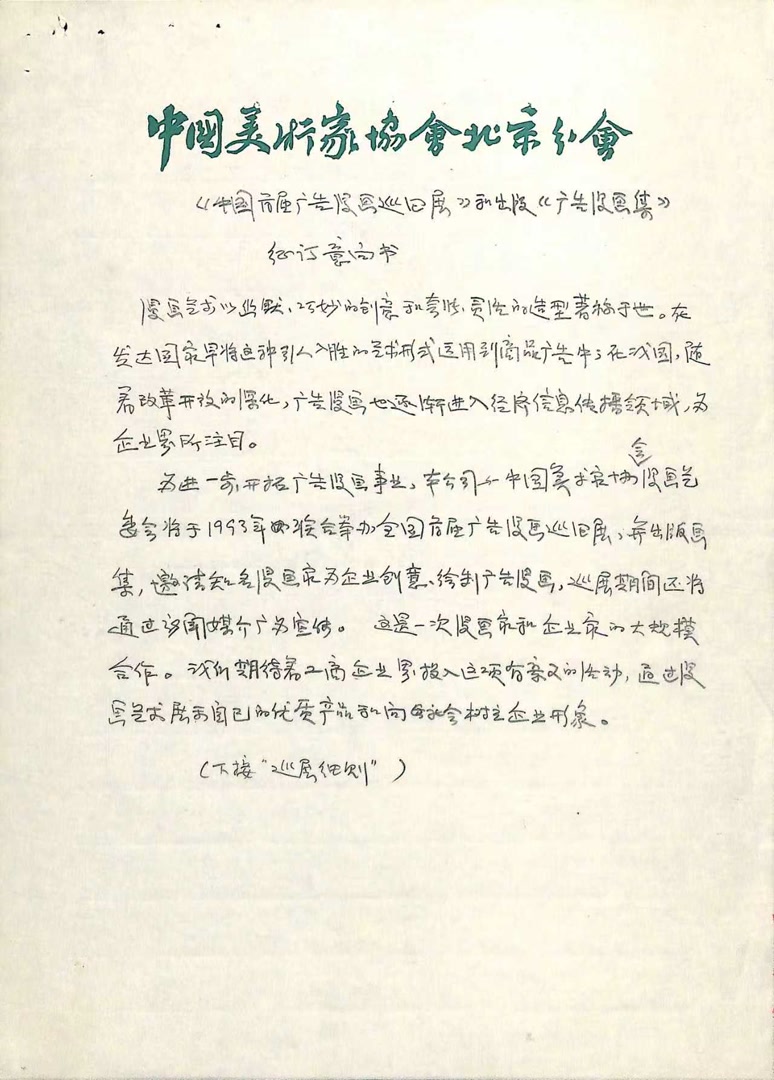 中國美術家協會北京分會
《中国首届广告漫画巡回展》和出版《广告漫画集》
征订意向书
漫画艺术以幽默、巧妙的创意和夸张、灵活的造型著称于世。在
发达国家早将这种引人入胜的艺术形式运用到商品广告中；在我国，随
着改革开放的深化，广告漫画也逐渐进入经济信息传播领域，为
企业界所注目。
为进一步开拓广告漫画事业，本公司与中国美术家协会漫画艺
委会将于1993年联合举办全国首届广告漫画巡回展，并出版画
集，邀请知名漫画家为企业创意、绘制广告漫画，巡展期间还将
通过新闻媒介广为宣传。 这是一次漫画家和企业家的大规模
合作。我们期待着工商企业界投入这项有意义的活动，通过漫
画艺术展示自己的优质产品和向社会树立企业形象。
（下接“巡展细则”）